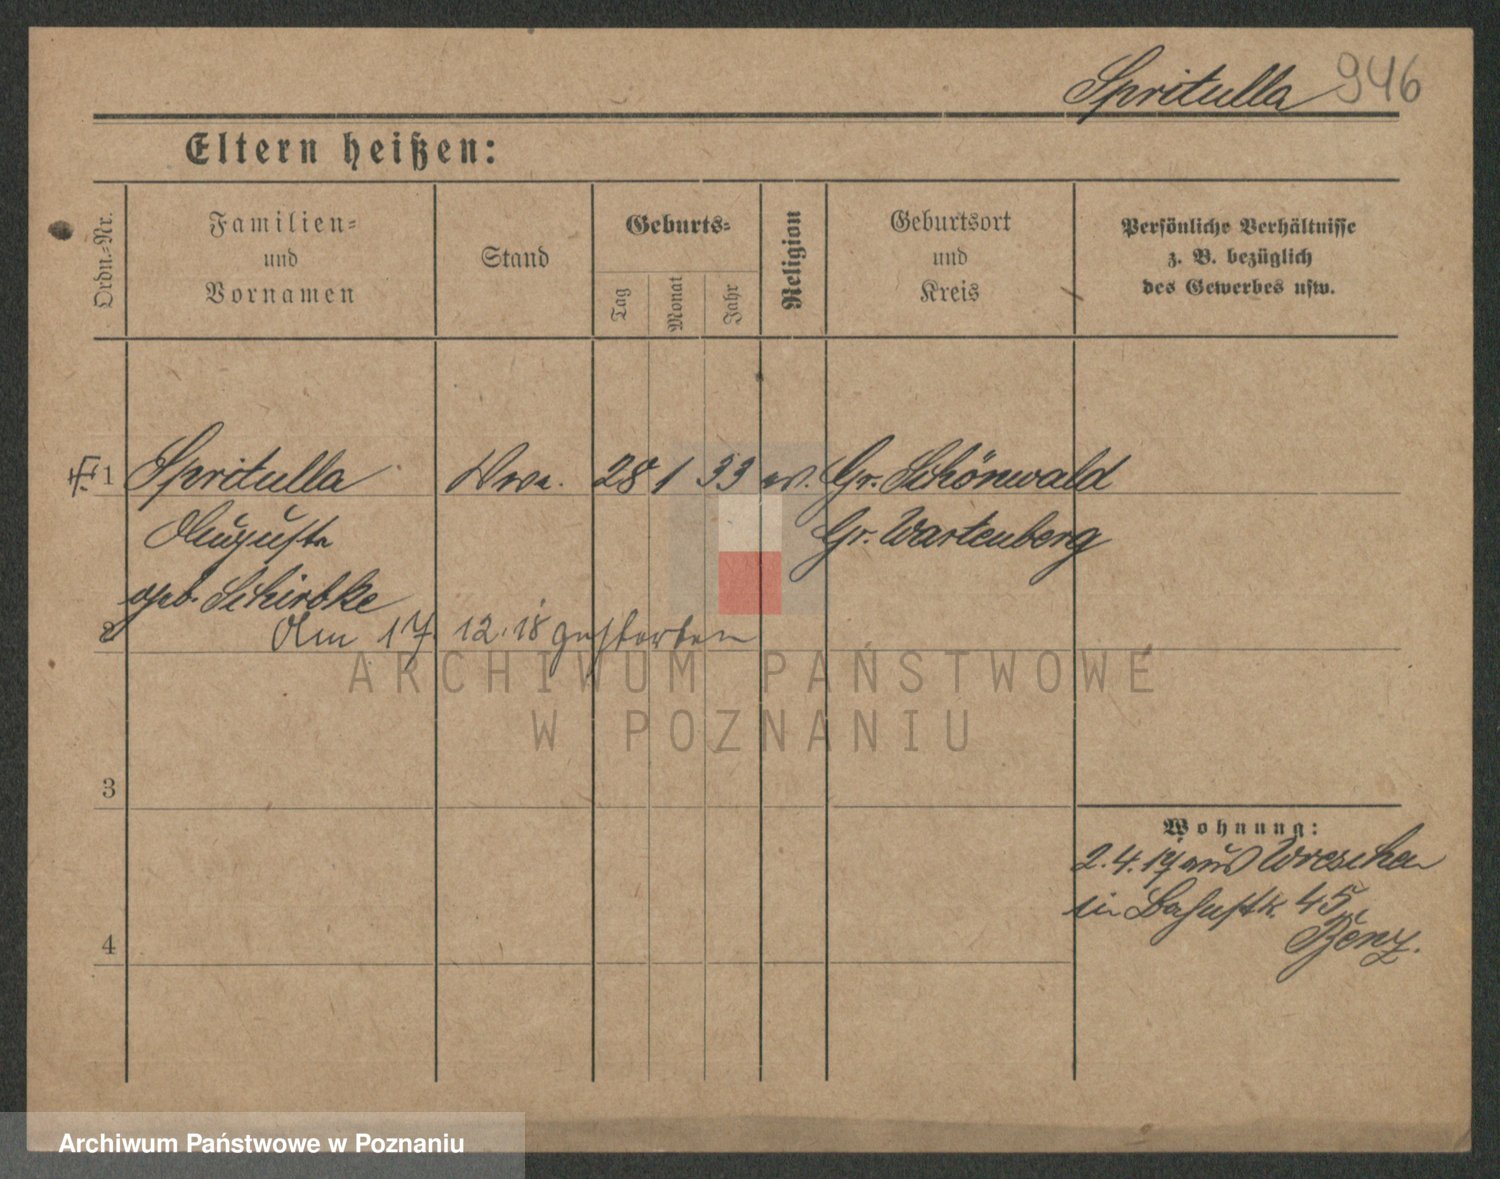 Spritulla 946
Eltern heißen:
Ordn.-Nr.
Familien-
und
Vornamen
Stand
Geburts-
Tag
Monat
Jahr
Religion
Geburtsort
und
Kreis
Persönliche Verhältnisse
z. B. bezüglich
des Gewerbes usw.
1 Spritulla Wwe. 28 1 33 ev. Gr. Schönwald
Auguste Gr. Wartenberg
geb. Schirbke
2 Am 17. 12. 18 gestorben
ARCHIWUM PAŃSTWOWE
W POZNANIU
3
Wohnung:
2.4.17 aus Wreschen
in 45
4
Archiwum Państwowe w Poznaniu